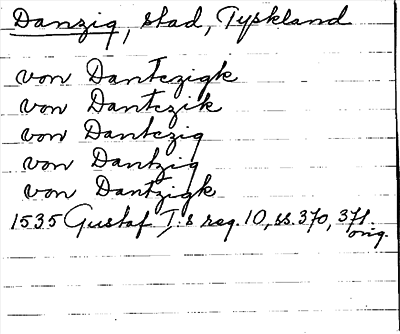 Danzig, stad, Tyskland
von Dantezigk
von Dantezik
von Dantezig
von Dantzig
von Dantzigk
1535 Gustaf I:s reg. 10, ss. 370, 371.
orig.